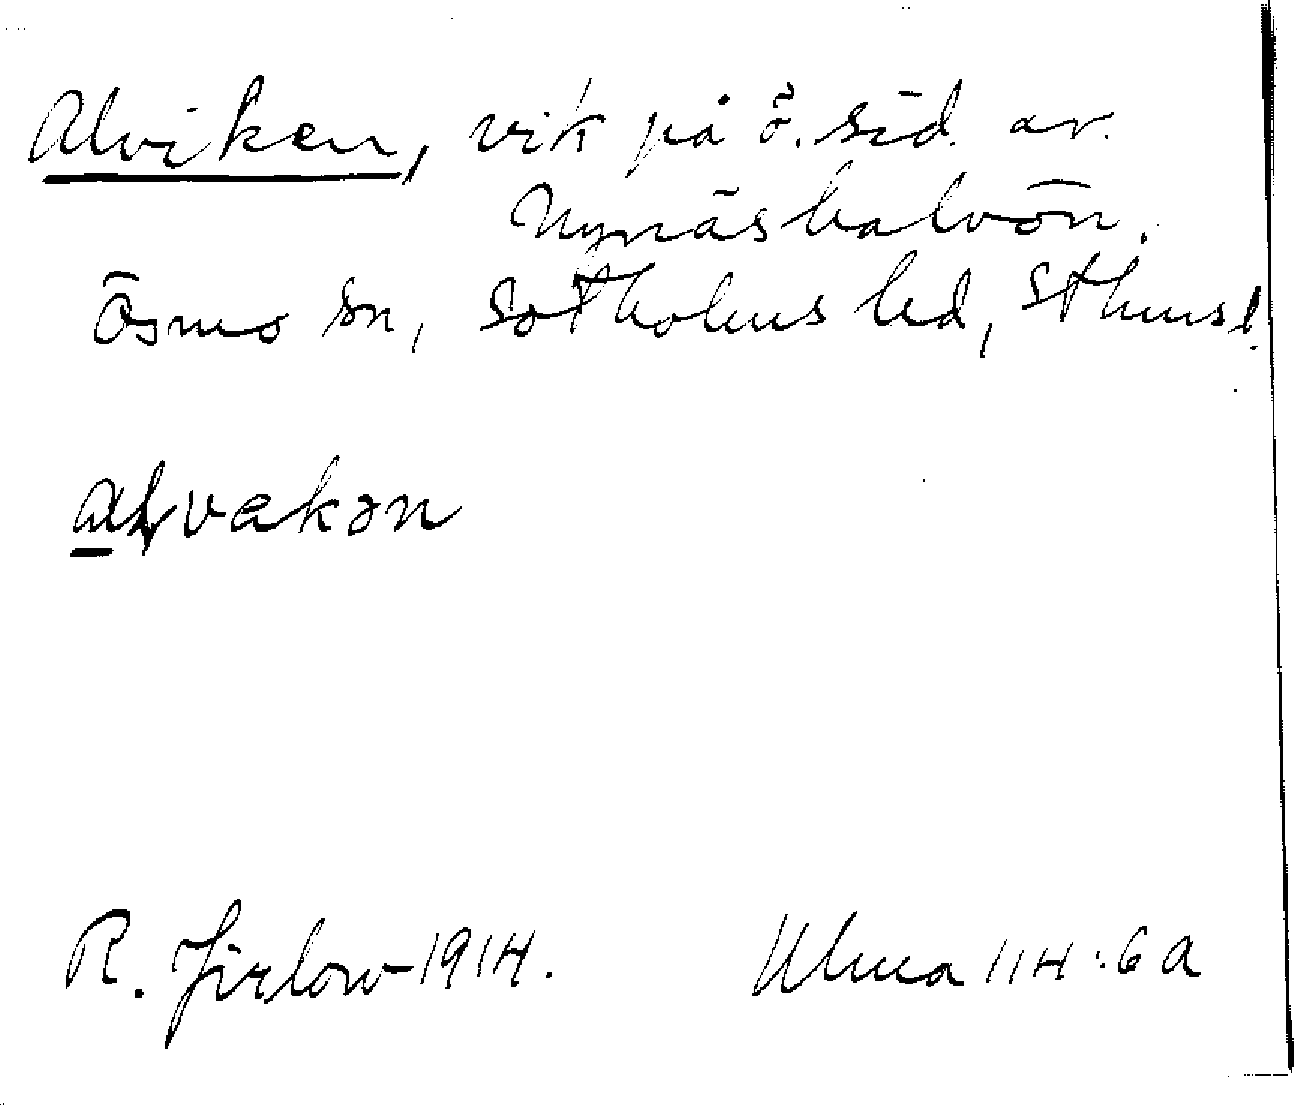 Alviken, vik på ö. sid. av.
Nynäshalvön.
Ösmo sn, Sotholms hd, Sthms l.
alvakən
R. Jirlow 1914. Ulma 114:6a